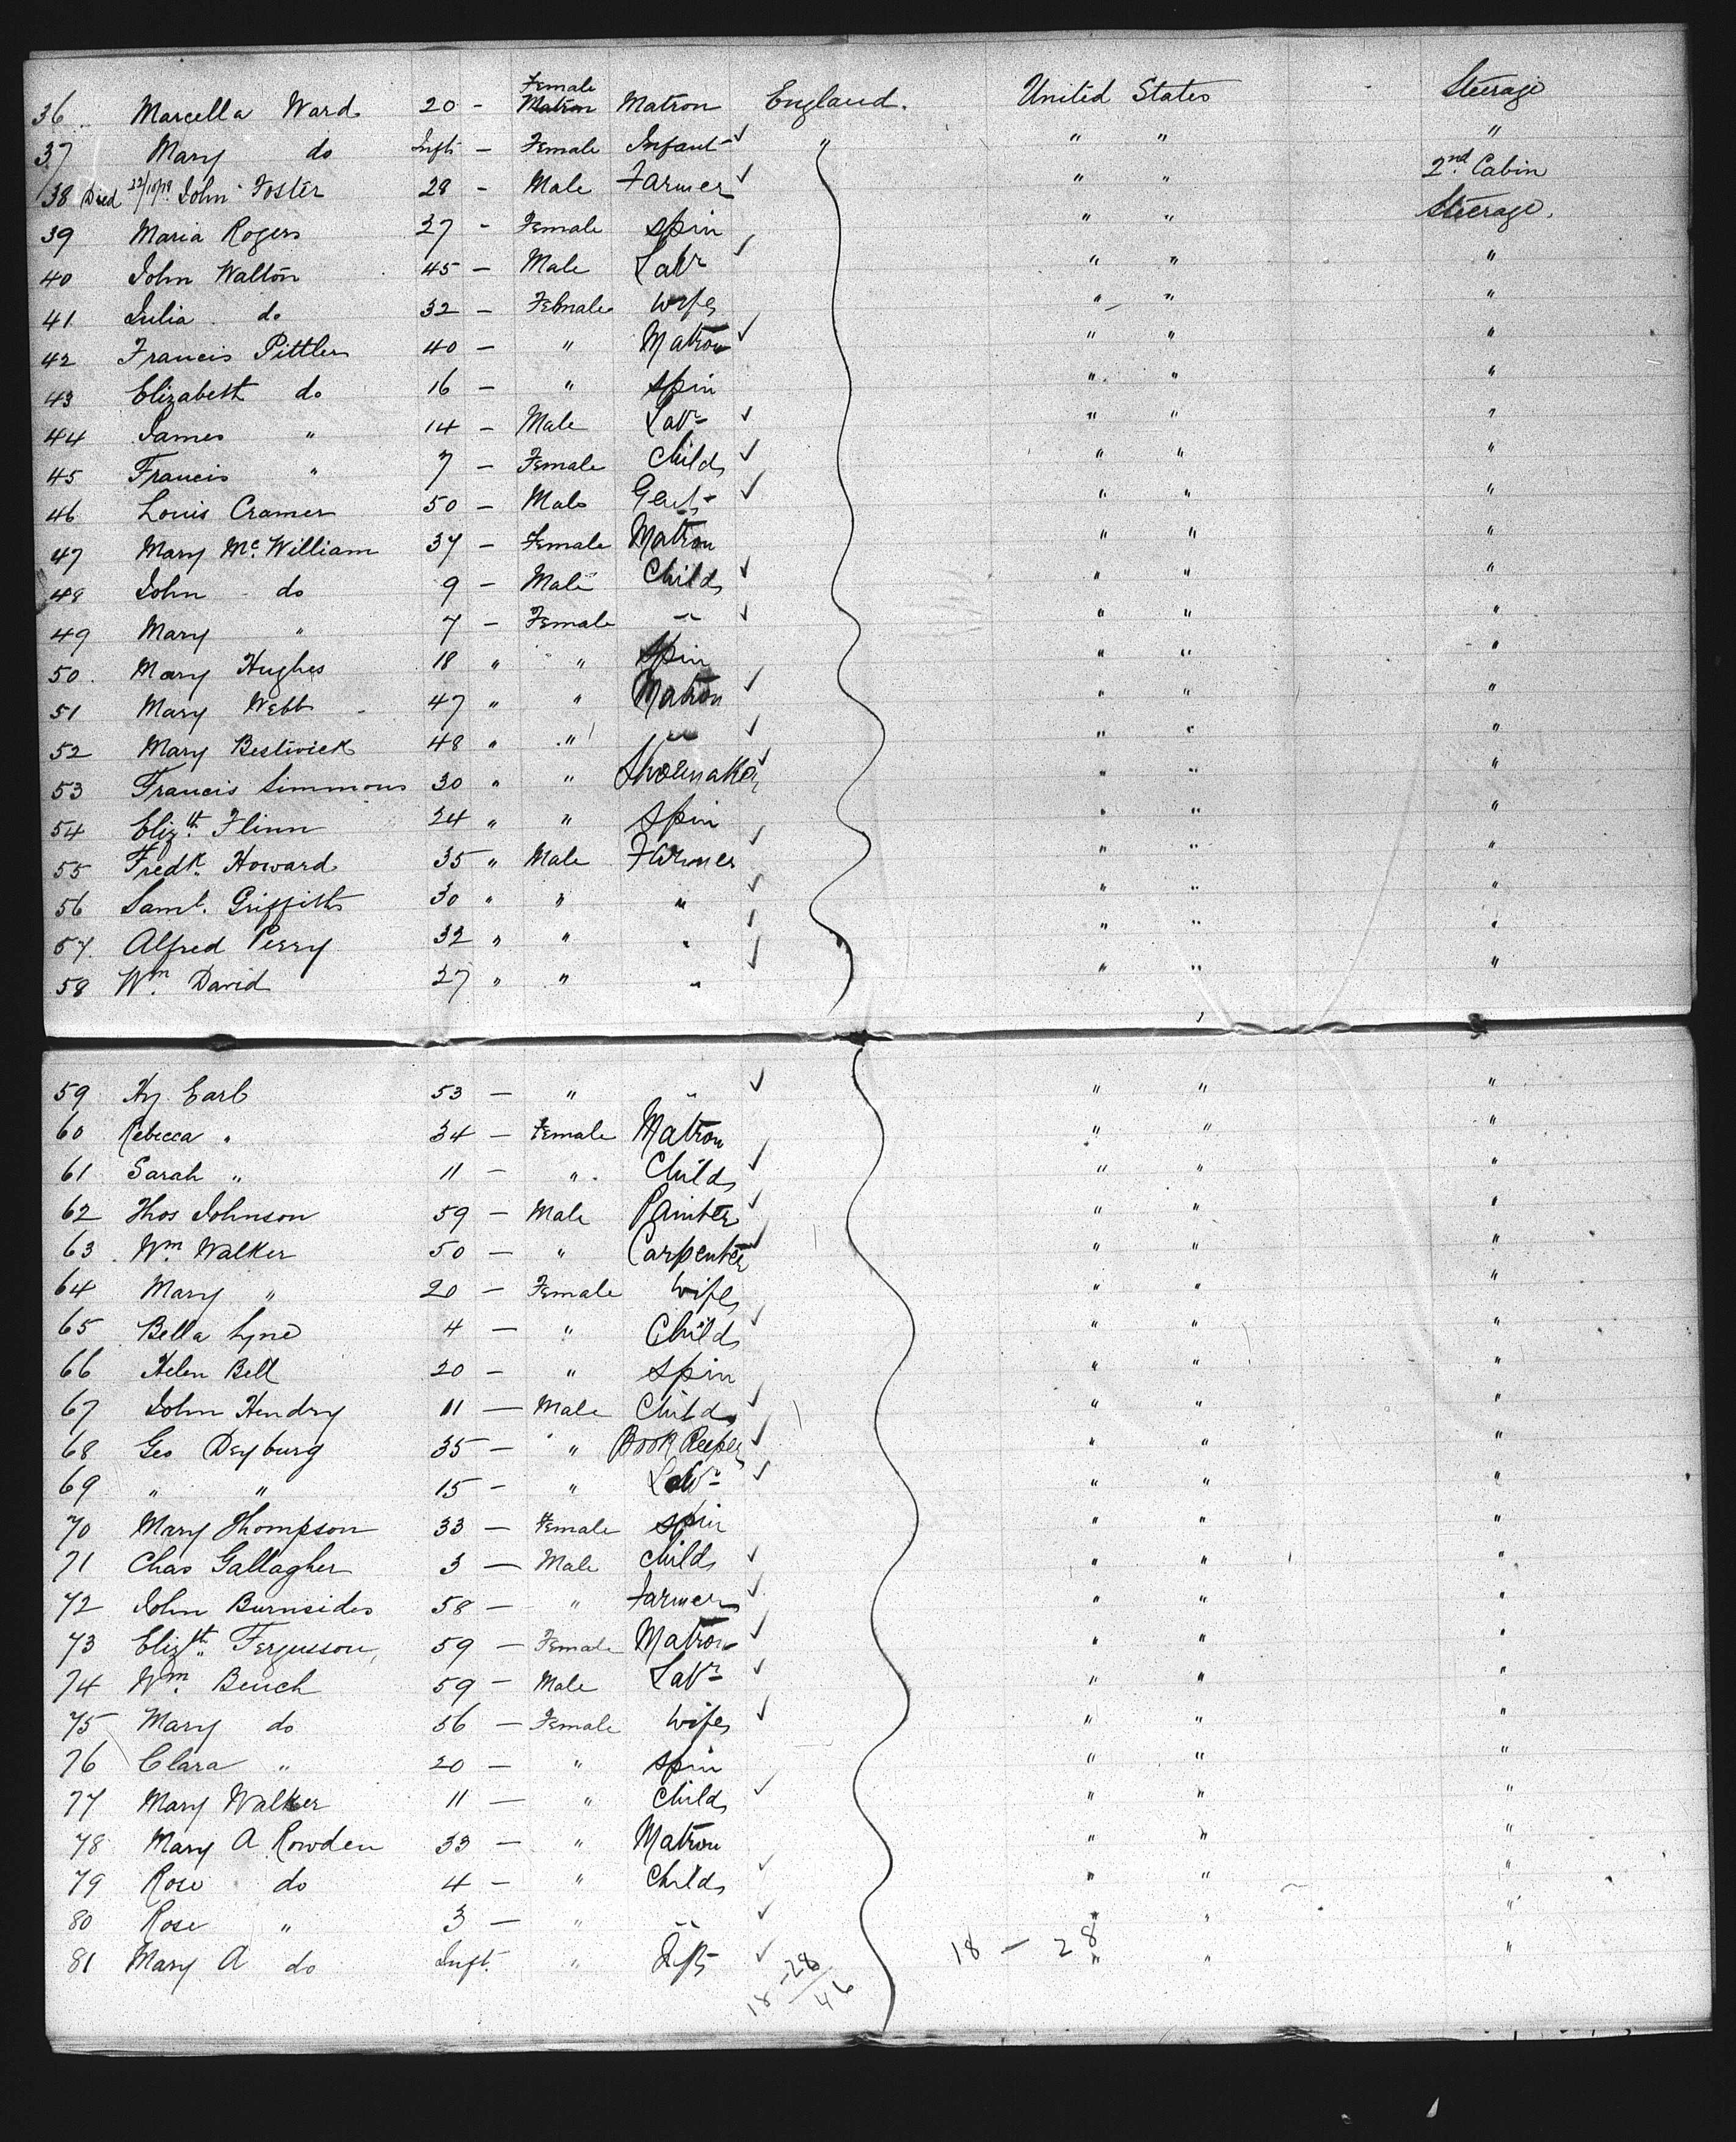 36 Marcella Ward 20 - Female Matron Matron England. United States Steerage
37 Mary do Inft - Female Infant " " " "
38 Died 22/10/78 John Foster 28 - Male Farmer " " 2nd Cabin
39 Maria Rogers 27 - Female Spin " " Steerage.
40 John Walton 45 - Male Labr " " "
41 Julia do 32 - Female Wife " " "
42 Francis Pittler 40 - " Matron " " "
43 Elizabeth do 16 - " Spin " " "
44 James " 14 - Male Labr " " "
45 Francis " 7 - Female Child " " "
46 Louis Cramer 50 - Male Gent " " "
47 Mary Mc. William 37 - Female Matron " " "
48 John do 9 - Male Child " " "
49 Mary " 7 - Female " " " "
50. Mary Hughes 18 " " Spin " " "
51 Mary Webb 47 " " Matron " " "
52 Mary Bestwick 48 " " " " " "
53 Francis Simmons 30 " " Shoemaker " " "
54 Elizth. Flinn 24 " " Spin " " "
55 Fredk. Howard 35 " Male Farmer " " "
56 Saml. Griffith 30 " " " " " "
57. Alfred Perry 32 " " " " " "
58 Wm. David 27 " " " " " "
59 Hy Earl 53 - " " " " "
60 Rebecca " 34 - Female Matron " " "
61 Sarah " 11 - " Child " " "
62 Thos Johnson 59 - Male Painter " " "
63 Wm. Walker 50 - " Carpenter " " "
64 Mary " 20 - Female Wife " " "
65 Bella Lyne 4 - " Child " " "
66 Helen Bell 20 - " Spin " " "
67 John Hendry 11 - Male Child " " "
68 Geo Deyburg 35 - " Book Keeper " " "
69 " " 15 - " Labr " " "
70 Mary Thompson 33 - Female Spin " " "
71 Chas Gallagher 3 - Male Child " " "
72 John Burnsides 58 - " Farmer " " "
73 Elizth. Fergusson 59 - Female Matron " " "
74 Wm. Beuch 59 - Male Labr " " "
75 Mary do 56 - Female Wife " " "
76 Clara " 20 - " Spin " " "
77 Mary Walker 11 - " Child " " "
78 Mary A Rowden 33 - " Matron " " "
79 Rose do 4 - " Child " " "
80 Rose " 3 - " " " " "
81 Mary A do Inft. " Ift " " "
18 - 28
18 - 28
46